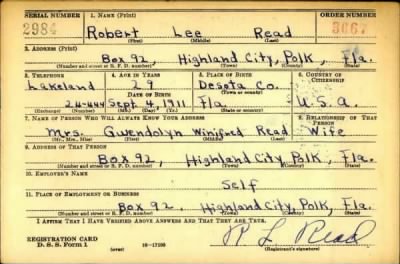 SERIAL NUMBER 1. NAME (Print) ORDER NUMBER
2984 Robert Lee Read 3667
(First) (Middle) (Last)
2. ADDRESS (Print)
Box 92, Highland City, Polk, Fla.
(Number and street or R. F. D. number) (Town) (County) (State)
3. TELEPHONE 4. AGE IN YEARS 5. PLACE OF BIRTH 6. COUNTRY OF CITIZENSHIP
Lakeland 29 Desota Co.
DATE OF BIRTH (Town or county)
24-444 Sept. 4, 1911 Fla. U.S.A.
(Mo.) (Day) (Yr.) (State or country)
7. NAME OF PERSON WHO WILL ALWAYS KNOW YOUR ADDRESS 8. RELATIONSHIP OF THAT PERSON
Mrs. Gwendolyn Winifred Read Wife
(Mr., Mrs., Miss) (First) (Middle) (Last)
9. ADDRESS OF THAT PERSON
Box 92, Highland City, Polk, Fla.
(Number and street or R. F. D. number) (Town) (County) (State)
10. EMPLOYER'S NAME
Self
11. PLACE OF EMPLOYMENT OR BUSINESS
Box 92, Highland City, Polk, Fla.
(Number and street or R. F. D. number) (Town) (County) (State)
I AFFIRM THAT I HAVE VERIFIED ABOVE ANSWERS AND THAT THEY ARE TRUE.
REGISTRATION CARD R L Read
D. S. S. Form 1 (over) 16-17105 (Registrant's signature)